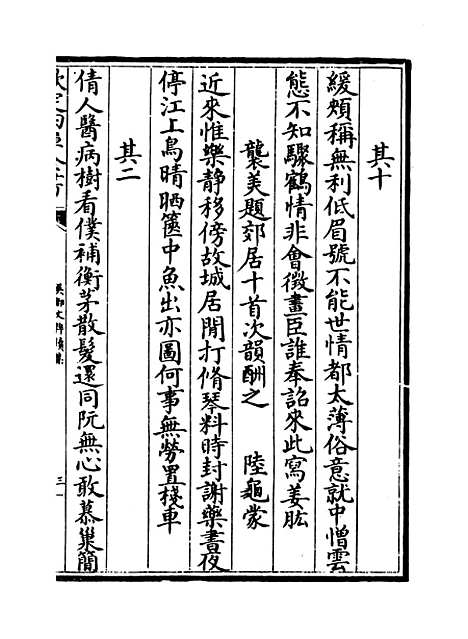 其十
緩頰稱無利低眉號不能世情都太薄俗意就中憎雲
態不知驟鶴情非會徵畫臣誰奉詔來此寫姜肱
襲美題郊居十首次韻酬之　陸龜蒙
近來惟樂靜移傍故城居閒打脩琴料時封謝藥書夜
停江上鳥晴晒篋中魚出亦圖何事無勞置棧車
其二
倩人醫病樹看僕補衡茅散髮還同阮無心敢慕巢簡